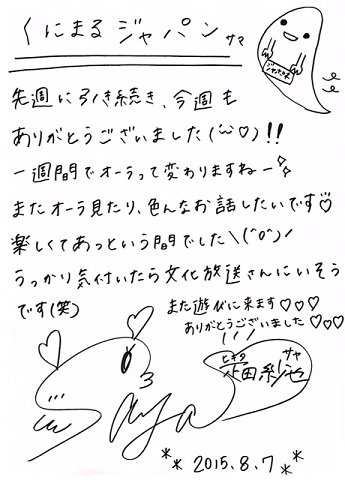 くにまるジャパン サマ
先週に引き続き、今週も
ありがとうございました(´︶`♡)!!
一週間でオーラって変わりますねー✧
またオーラ見たり、色んなお話したいです♡
楽しくてあっという間でした＼(^o^)／
うっかり気付いたら文化放送さんにいそう
です(笑)
また遊びに来ます♡♡♡
ありがとうございました♡♡♡
ヒキタ サヤ
疋田紗也
Saya
2015.8.7